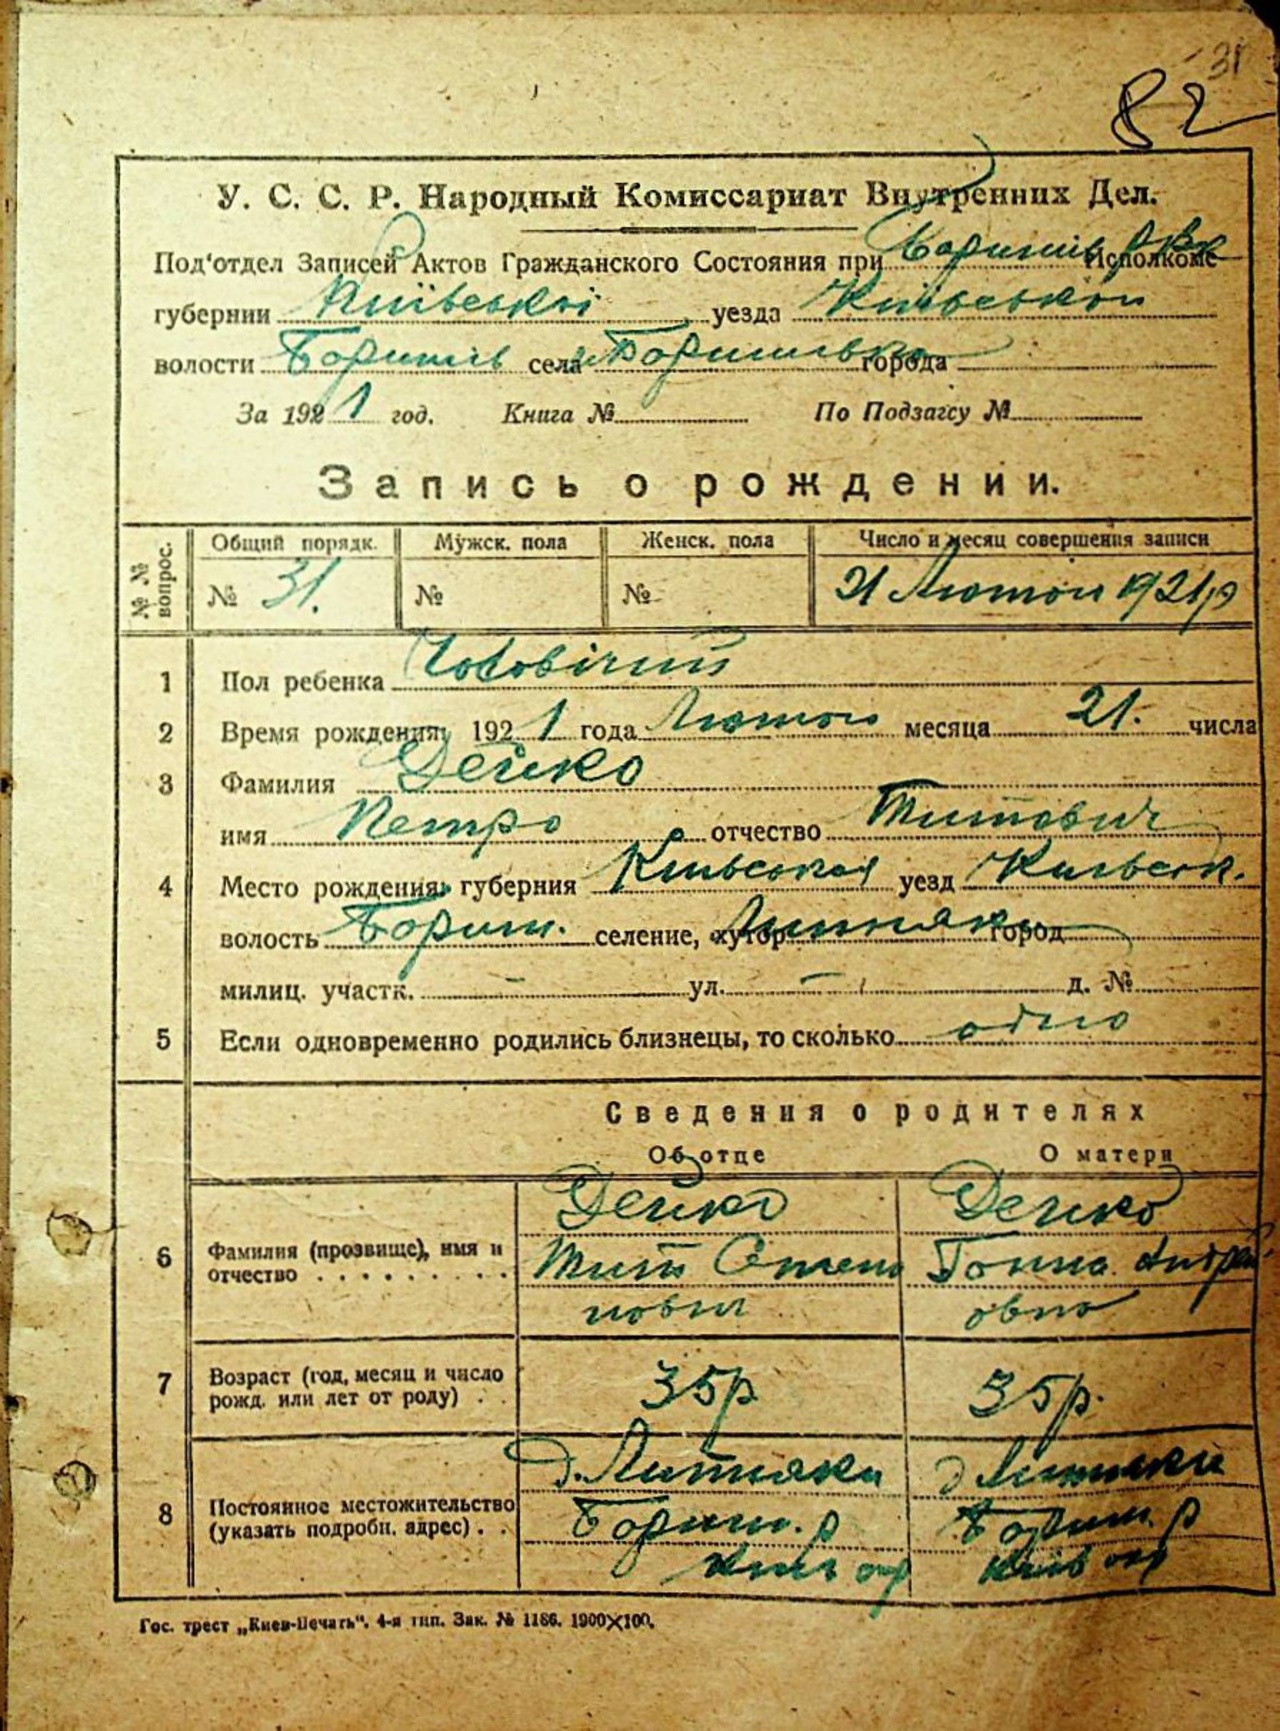 31
82
У. С. С. Р. Народный Комиссариат Внутренних Дел.
Под'отдел Записей Актов Гражданского Состояния при Бориспів РВК Исполкоме
губернии Київської уезда Київської
волости Бориспів села города
За 1921 год. Книга № По Подзагсу №
Запись о рождении.
№ № вопрос. Общий порядк. Мужск. пола Женск. пола Число и месяц совершения записи
№ 31. № № 21 Лютого 1921 р
1 Пол ребенка Чоловічий
2 Время рождения: 1921 года Лютого месяца 21. числа
3 Фамилия Дейко
имя Петро отчество Титович
4 Место рождения: губерния Київська уезд Київськ.
волость Бориш. селение, хутор город
милиц. участк. – ул. – д. №
5 Если одновременно родились близнецы, то сколько одно
Сведения о родителях
Об отце О матери
6 Фамилия (прозвище), имя и отчество
Дейко Дейко
Тит Ганна Андрей
овна
7 Возраст (год, месяц и число рожд. или лет от роду) . . 35р 35р.
8 Постоянное местожительство (указать подробн. адрес) . .
д. д.
Бориш. р Бориш. р
Київ окр Київ окр
Гос. трест „Киев-Печать". 4-я тип. Зак. № 1186. 1900×100.